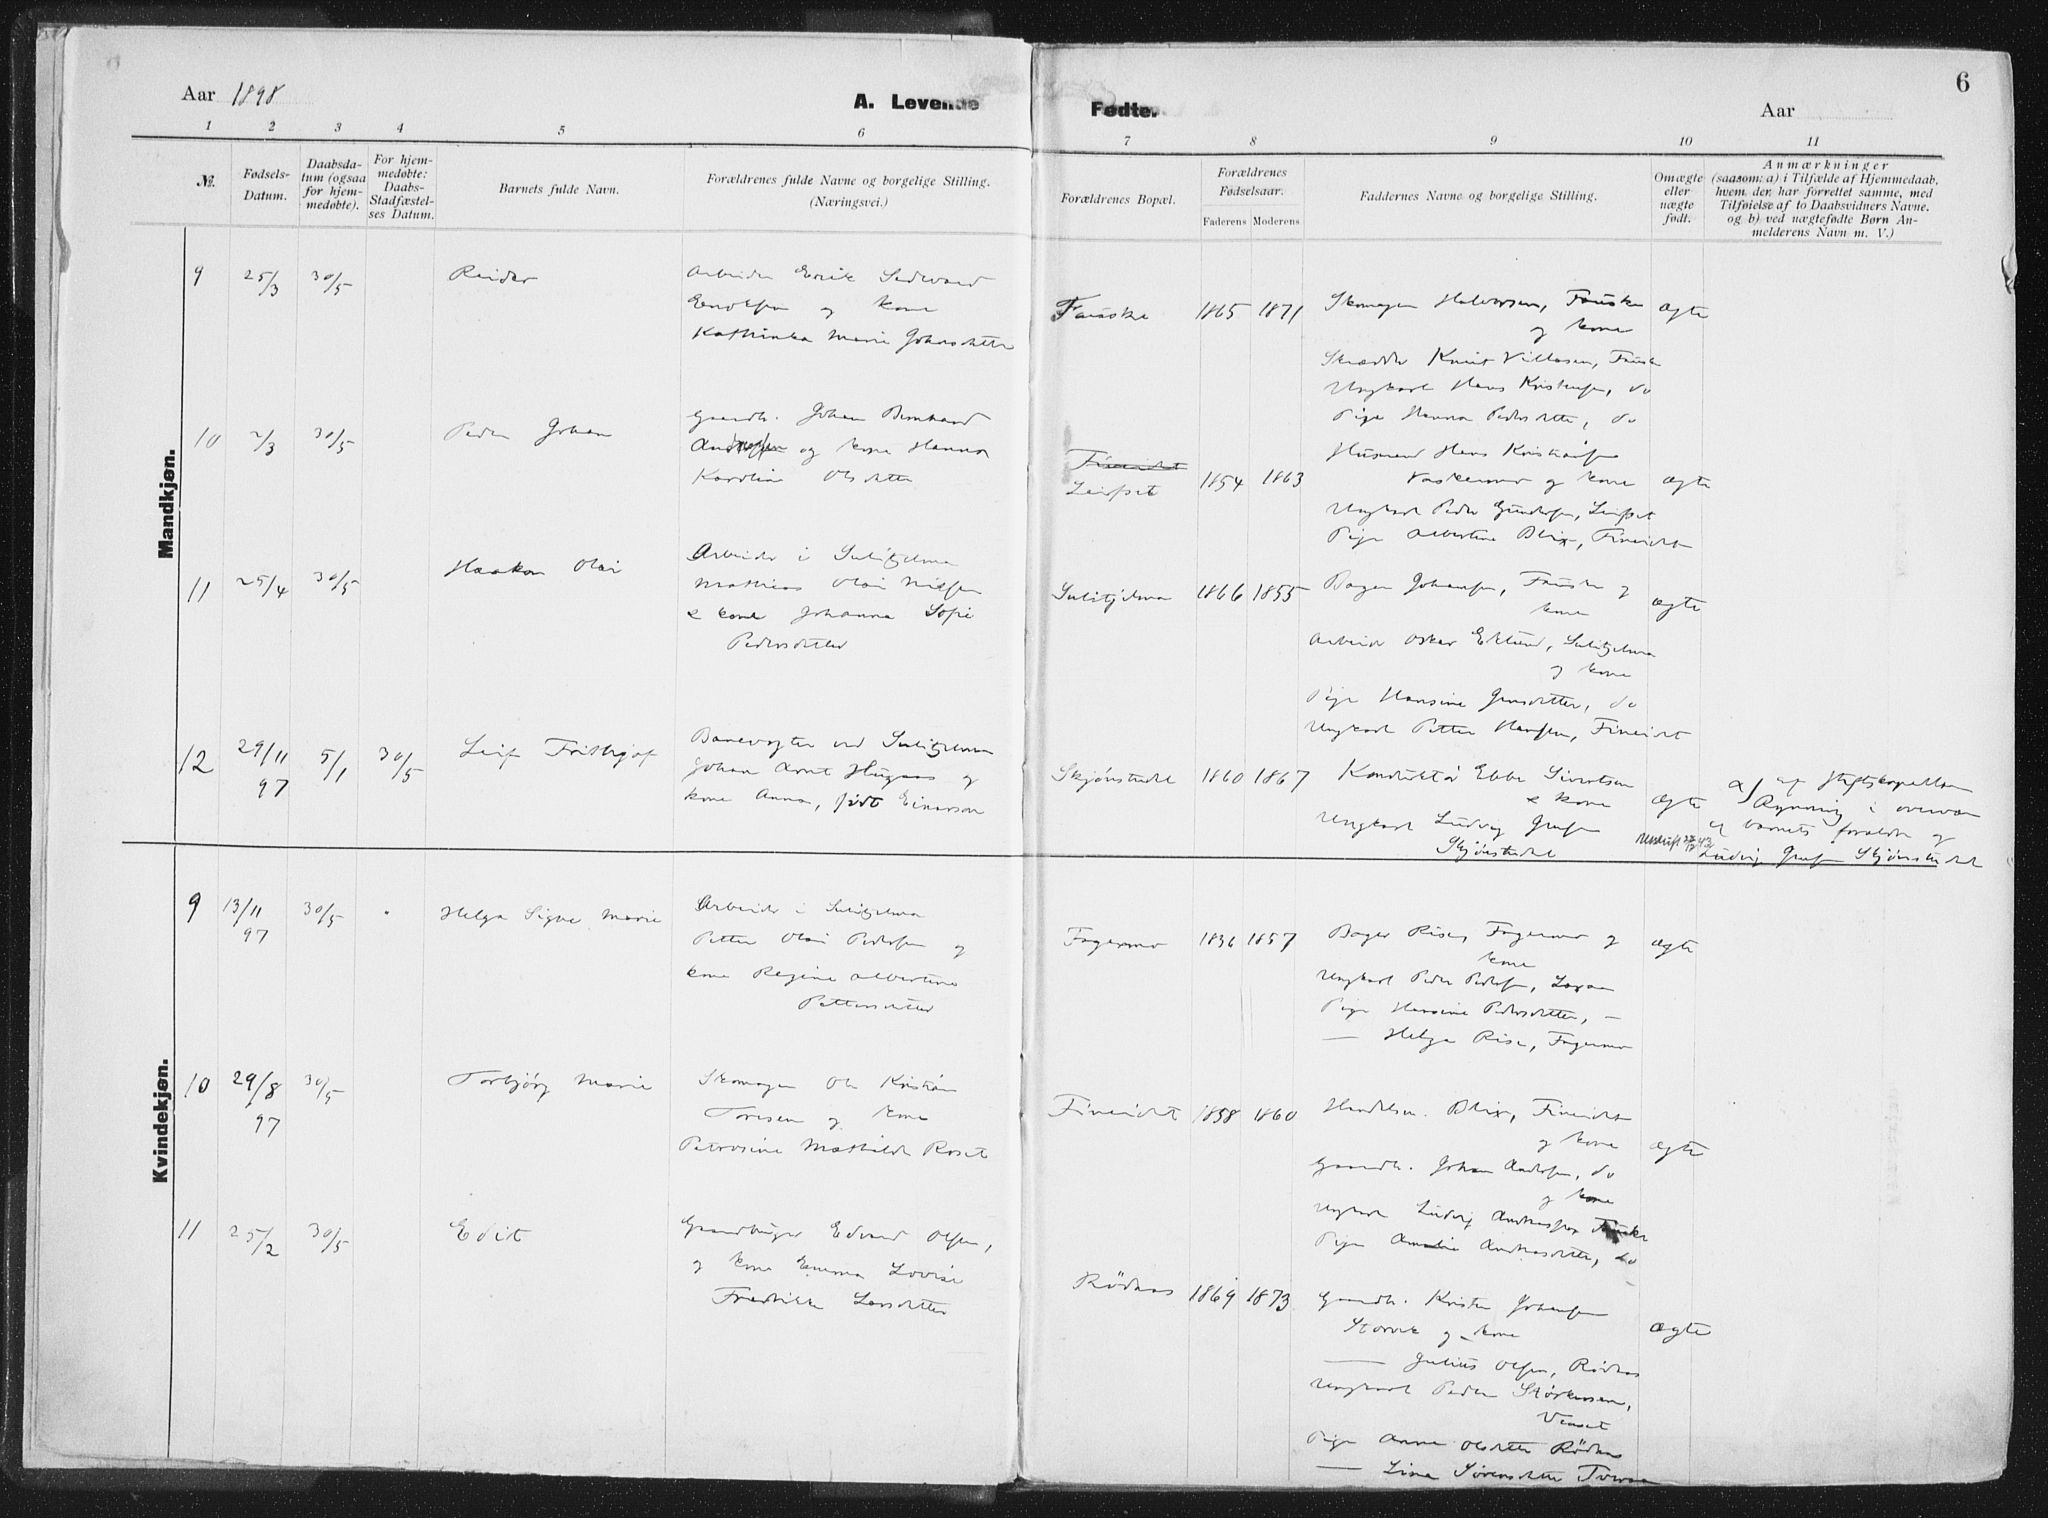 6
Aar 1898
A. Levende
Fødte.
Aar
1 2 3 4 5 6
7 8 9 10 11
№.
Fødsels-
Datum.
Daabsda-
tum (ogsaa
for hjem-
medøbte).
For hjem-
medøbte:
Daabs-
Stadfæstel-
ses Datum.
Barnets fulde Navn.
Forældrenes fulde Navne og borgelige Stilling.
(Næringsvei.)
Forældrenes Bopæl.
Forældrenes
Fødselsaar.
Faderens Moderens
Faddernes Navne og borgelige Stilling.
Omægte
eller
nægte
født.
Anmærkninger
(saasom: a) i Tilfælde af Hjemmedaab,
hvem der har forrettet samme, med
Tilføielse af to Daabsvidners Navne.
og b) ved nægtefødte Børn An-
melderens Navn m. V.)
Mandkjøn.
9 25/3 30/5 Reidar
Arbeider Erik Sedvard
og kone
Kathinka Marie Johnsdatter
Fauske 1865 1871
Skomager Halvorsen, Fauske
og kone
ægte
Skrædder Knut Villasen, Fauske
Ungkarl Hans Kristensen, do
Pige Hanna Pedersdatter, do
10 2/3 30/5 Peder Johan
Gaardb. Johan Bernhard
og kone Hanna
Karoline Olsdatter
Fineidet
Leifset 1854 1863
Husmand Hans Kristiansen
og kone
ægte
Ungkarl Peder Gundersen, Leifset
Pige Albertine Blix, Fineidet
11 25/4 30/5 Haakon Olai
Arbeider i Sulitjelma
Mathias Olai Nilsen
& kone Johanna Sofie
Pedersdatter
Sulitjelma 1866 1855
Bager Johansen, Fauske og
kone
ægte
Arbeider Oskar Eklund, Sulitjelma
og kone
Pige Hansine Jensdatter, do
Ungkarl Petter Hansen, Fineidet
12 29/11 97 5/1 30/5 Leif Frithjof
Banevogter ved Sulitjelma
Johan Arnt Hugaas og
kone Anna, født Einarson
Skjønstuedt 1860 1867
Konduktør Ebbe Sivertsen
& kone
ægte
Ungkarl Ludvig Grufsen
Skjønstudet
a) af stiftskapellan
Rynning i overvær
af barnets forældre og
Ludvig Skjønstudet
Kvindekjøn.
9 13/11 97 30/5 Helga Signe Marie
Arbeider i Sulitjelma
Petter Olai Pedersen og
kone Regine Albertine
Pettersdatter
Fagermo 1836 1857
Bager Rise, Fagermo og
kone
ægte
Ungkarl Peder Pedersen,
Pige Hansine Pedersdatter, —
— Helga Rise, Fagermo
10 29/8 97 30/5 Torbjørg Marie
Skomager Ole Kristian
Toresen og kone
Petrosine Mathilde Roset
Fineidet 1858 1860
Handelsm. Blix, Fineidet
og kone
ægte
Gaardb. Johan Andersen, do
og kone
Ungkarl Ludvig Andreassen Fauske
Pige Amalie Andreasdatter, do
11 25/2 30/5 Edit
Gaardbruger Edvard Olsen,
og kone Emma Lovise
Fredrikke Larsdatter
Rødnas 1869 1873
Gaardb. Kristen Johansen
Storvik og kone
ægte
— Julius Olsen, Rødnas
Ungkarl Peder Størkersen,
Venset
Pige Anne Olsdatter Rødnas
— Lina Sørensdatter